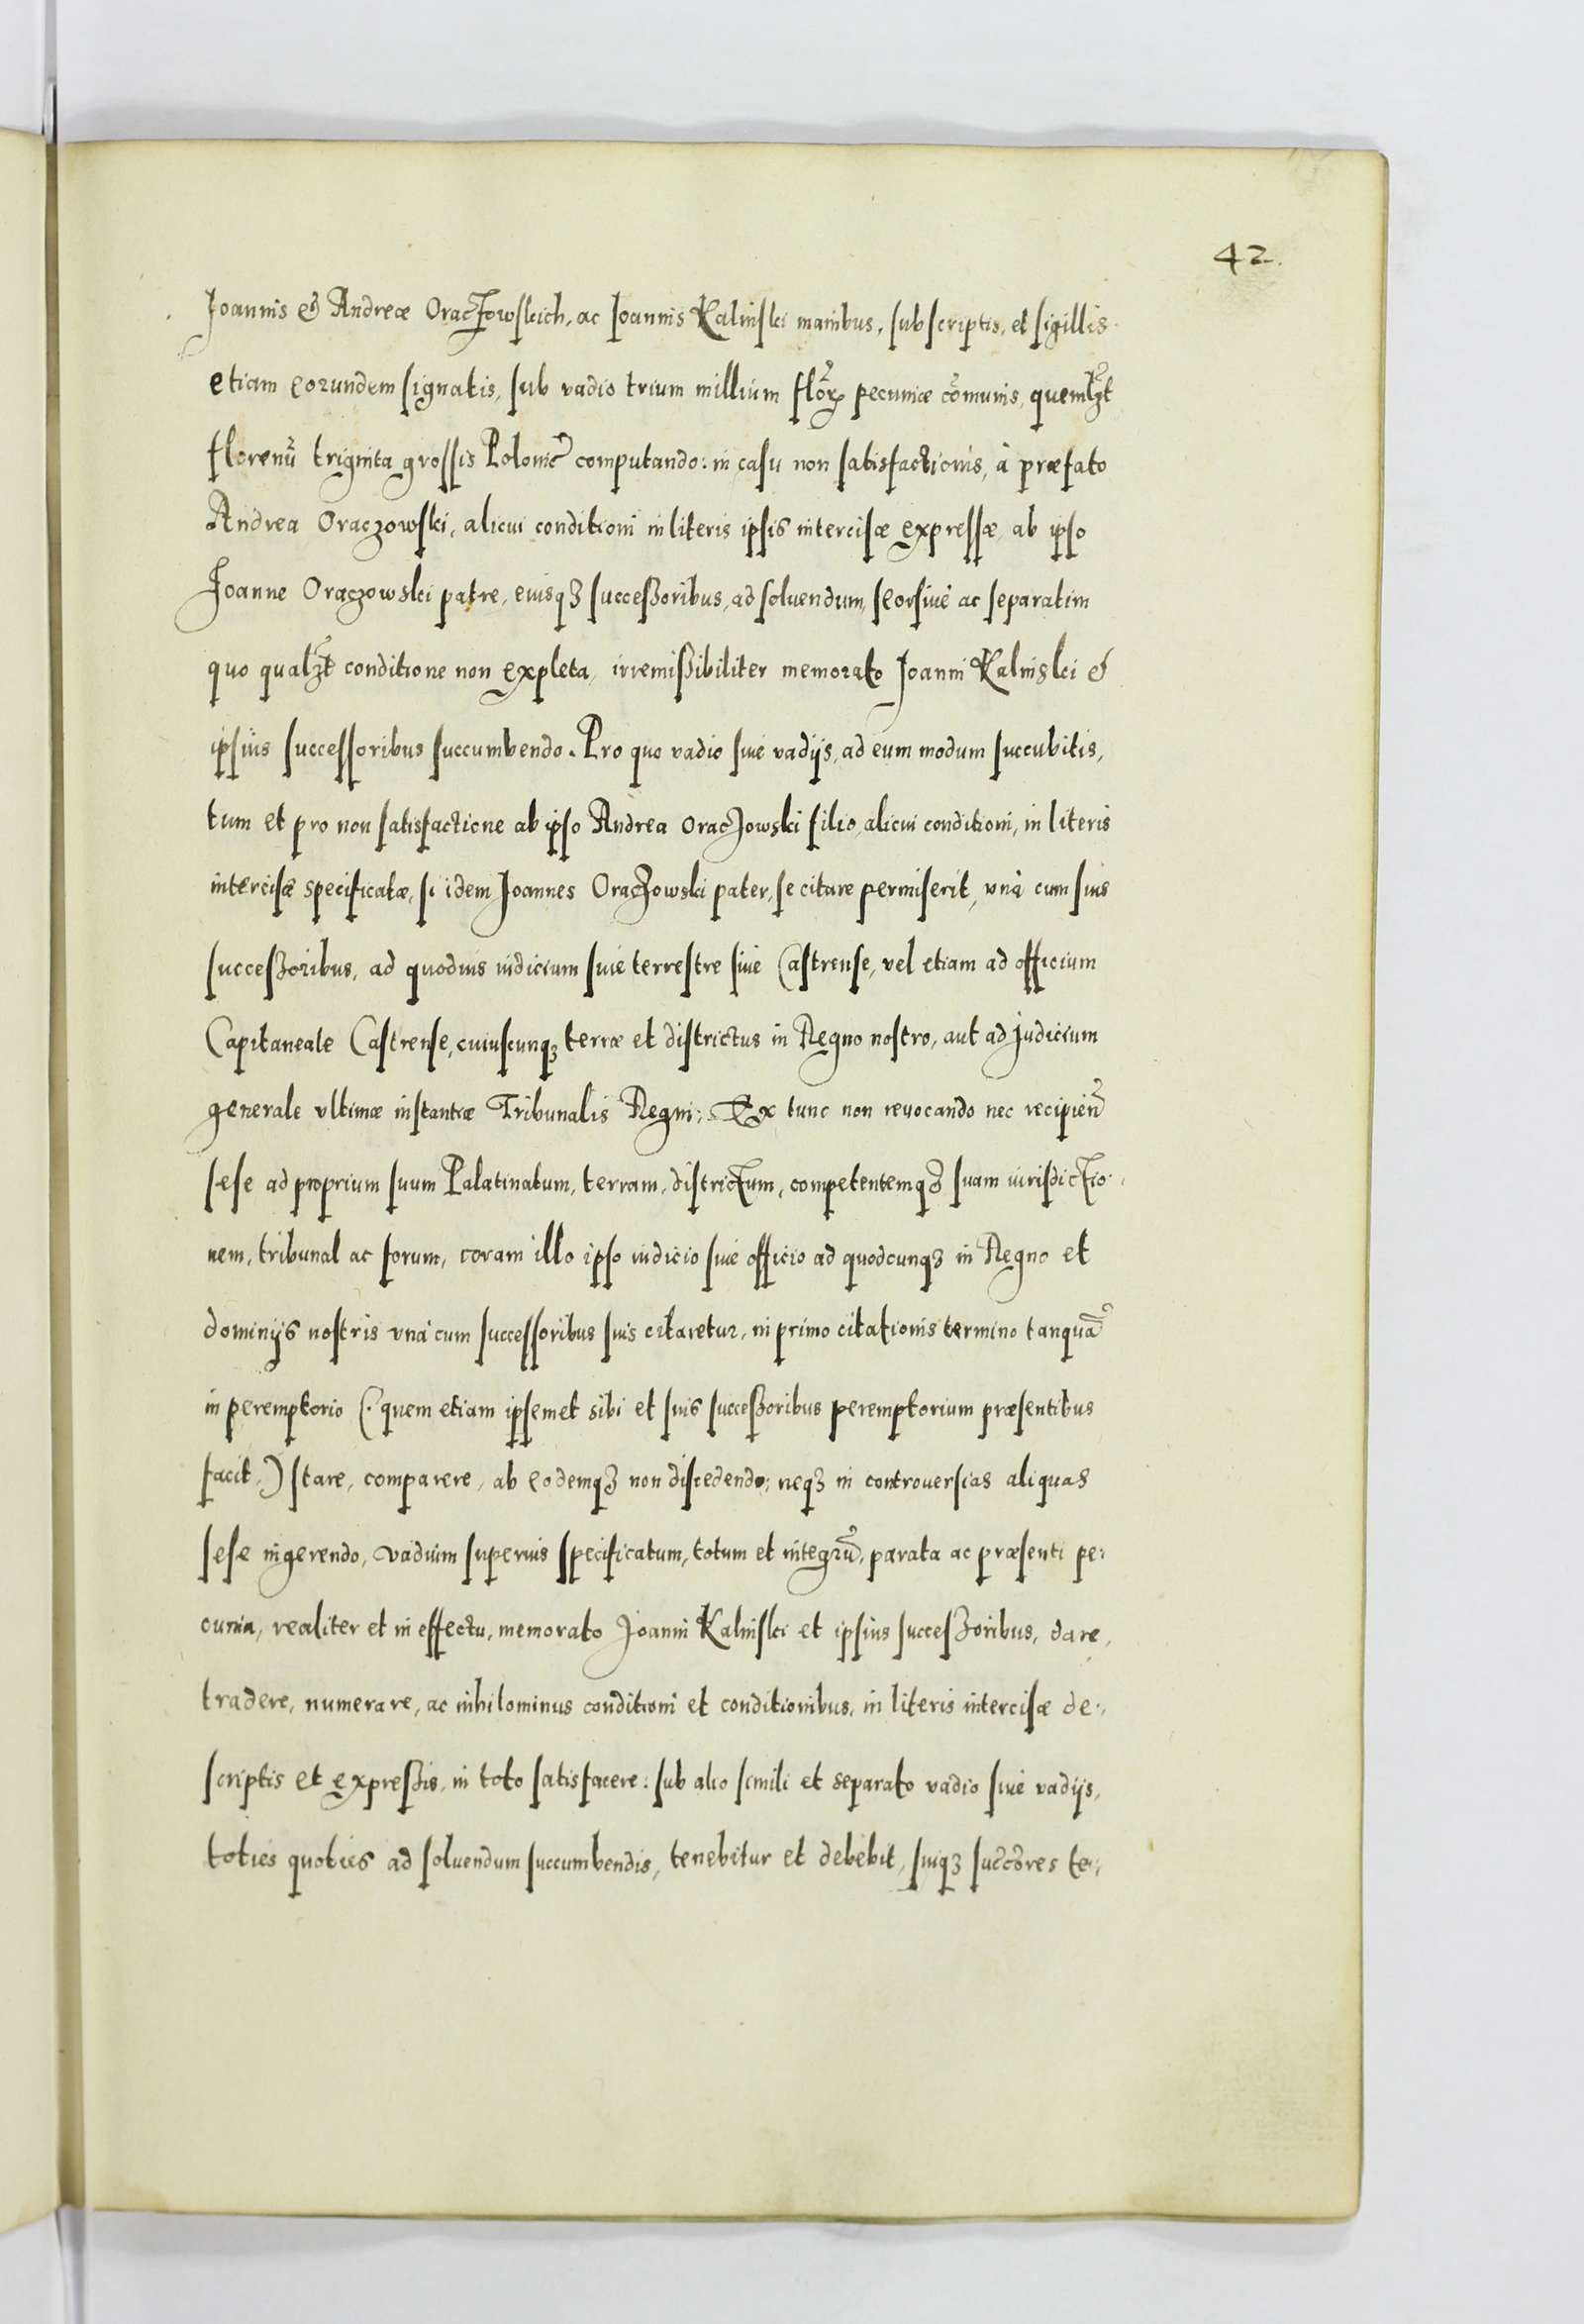 42.
Joannis & Andreæ Oraczowskich, ac Joannis Kalinski manibus, subscriptis, et sigillis
etiam eorundem signatis, sub vadio trium millium flor͂ pecuniæ com̃unis, quemlꝫt
florenũ triginta grossis Polonic̃ computando: in casu non satisfactionis, à præfato
Andrea Oraczowski, alicui conditioni in literis ipsis intercisæ expressæ, ab ipso
Joanne Oraczowski patre, eiusqꝫ successoribus, ad soluendum, seorsiuè ac separatim
quo qualꝫt conditione non expleta, irremissibiliter memorato Joanni Kalinski &
ipsius successoribus succumbendo. Pro quo vadio siuè vadijs, ad eum modum succubitis,
tum et pro non satisfactione ab ipso Andrea Oraczowski filio, alicui conditioni, in literis
intercisæ specificatæ, si idem Joannes Oraczowski pater, se citare permiserit, vnà cum suis
successoribus, ad quoduis iudicium siuè terrestre siuè Castrense, vel etiam ad officium
Capitaneale Castrense, cuiuscunqꝫ terræ et districtus in Regno nostro, aut ad judicium
generale vltimæ instantiæ Tribunalis Regni: Ex tunc non reuocando nec recipien̄
sese ad proprium suum Palatinatum, terram, districtum, competentemqꝫ suam iurisdictio-
nem, tribunal ac forum, coram illo ipso iudicio siuè officio ad quodcunqꝫ in Regno et
dominijs nostris vnà cum successoribus suis citaretur, in primo citationis termino tanquã
in peremptorio (: quem etiam ipsemet sibi et suis successoribus peremptorium præsentibus
facit,) stare, comparere, ab eodemqꝫ non discedendo; neqꝫ in controuersias aliquas
sese ingerendo, vadium superius specificatum, totum et integrũ, parata ac præsenti pe-
cunia, realiter et in effectu, memorato Joanni Kalinski et ipsius successoribus, dare,
tradere, numerare, ac nihilominus conditioni et conditionibus, in literis intercisæ de-
scriptis et expressis, in toto satisfacere: sub alio simili et separato vadio siuè vadijs,
toties quoties ad soluendum succumbendis, tenebitur et debebit, suiqꝫ succ̃ores te-